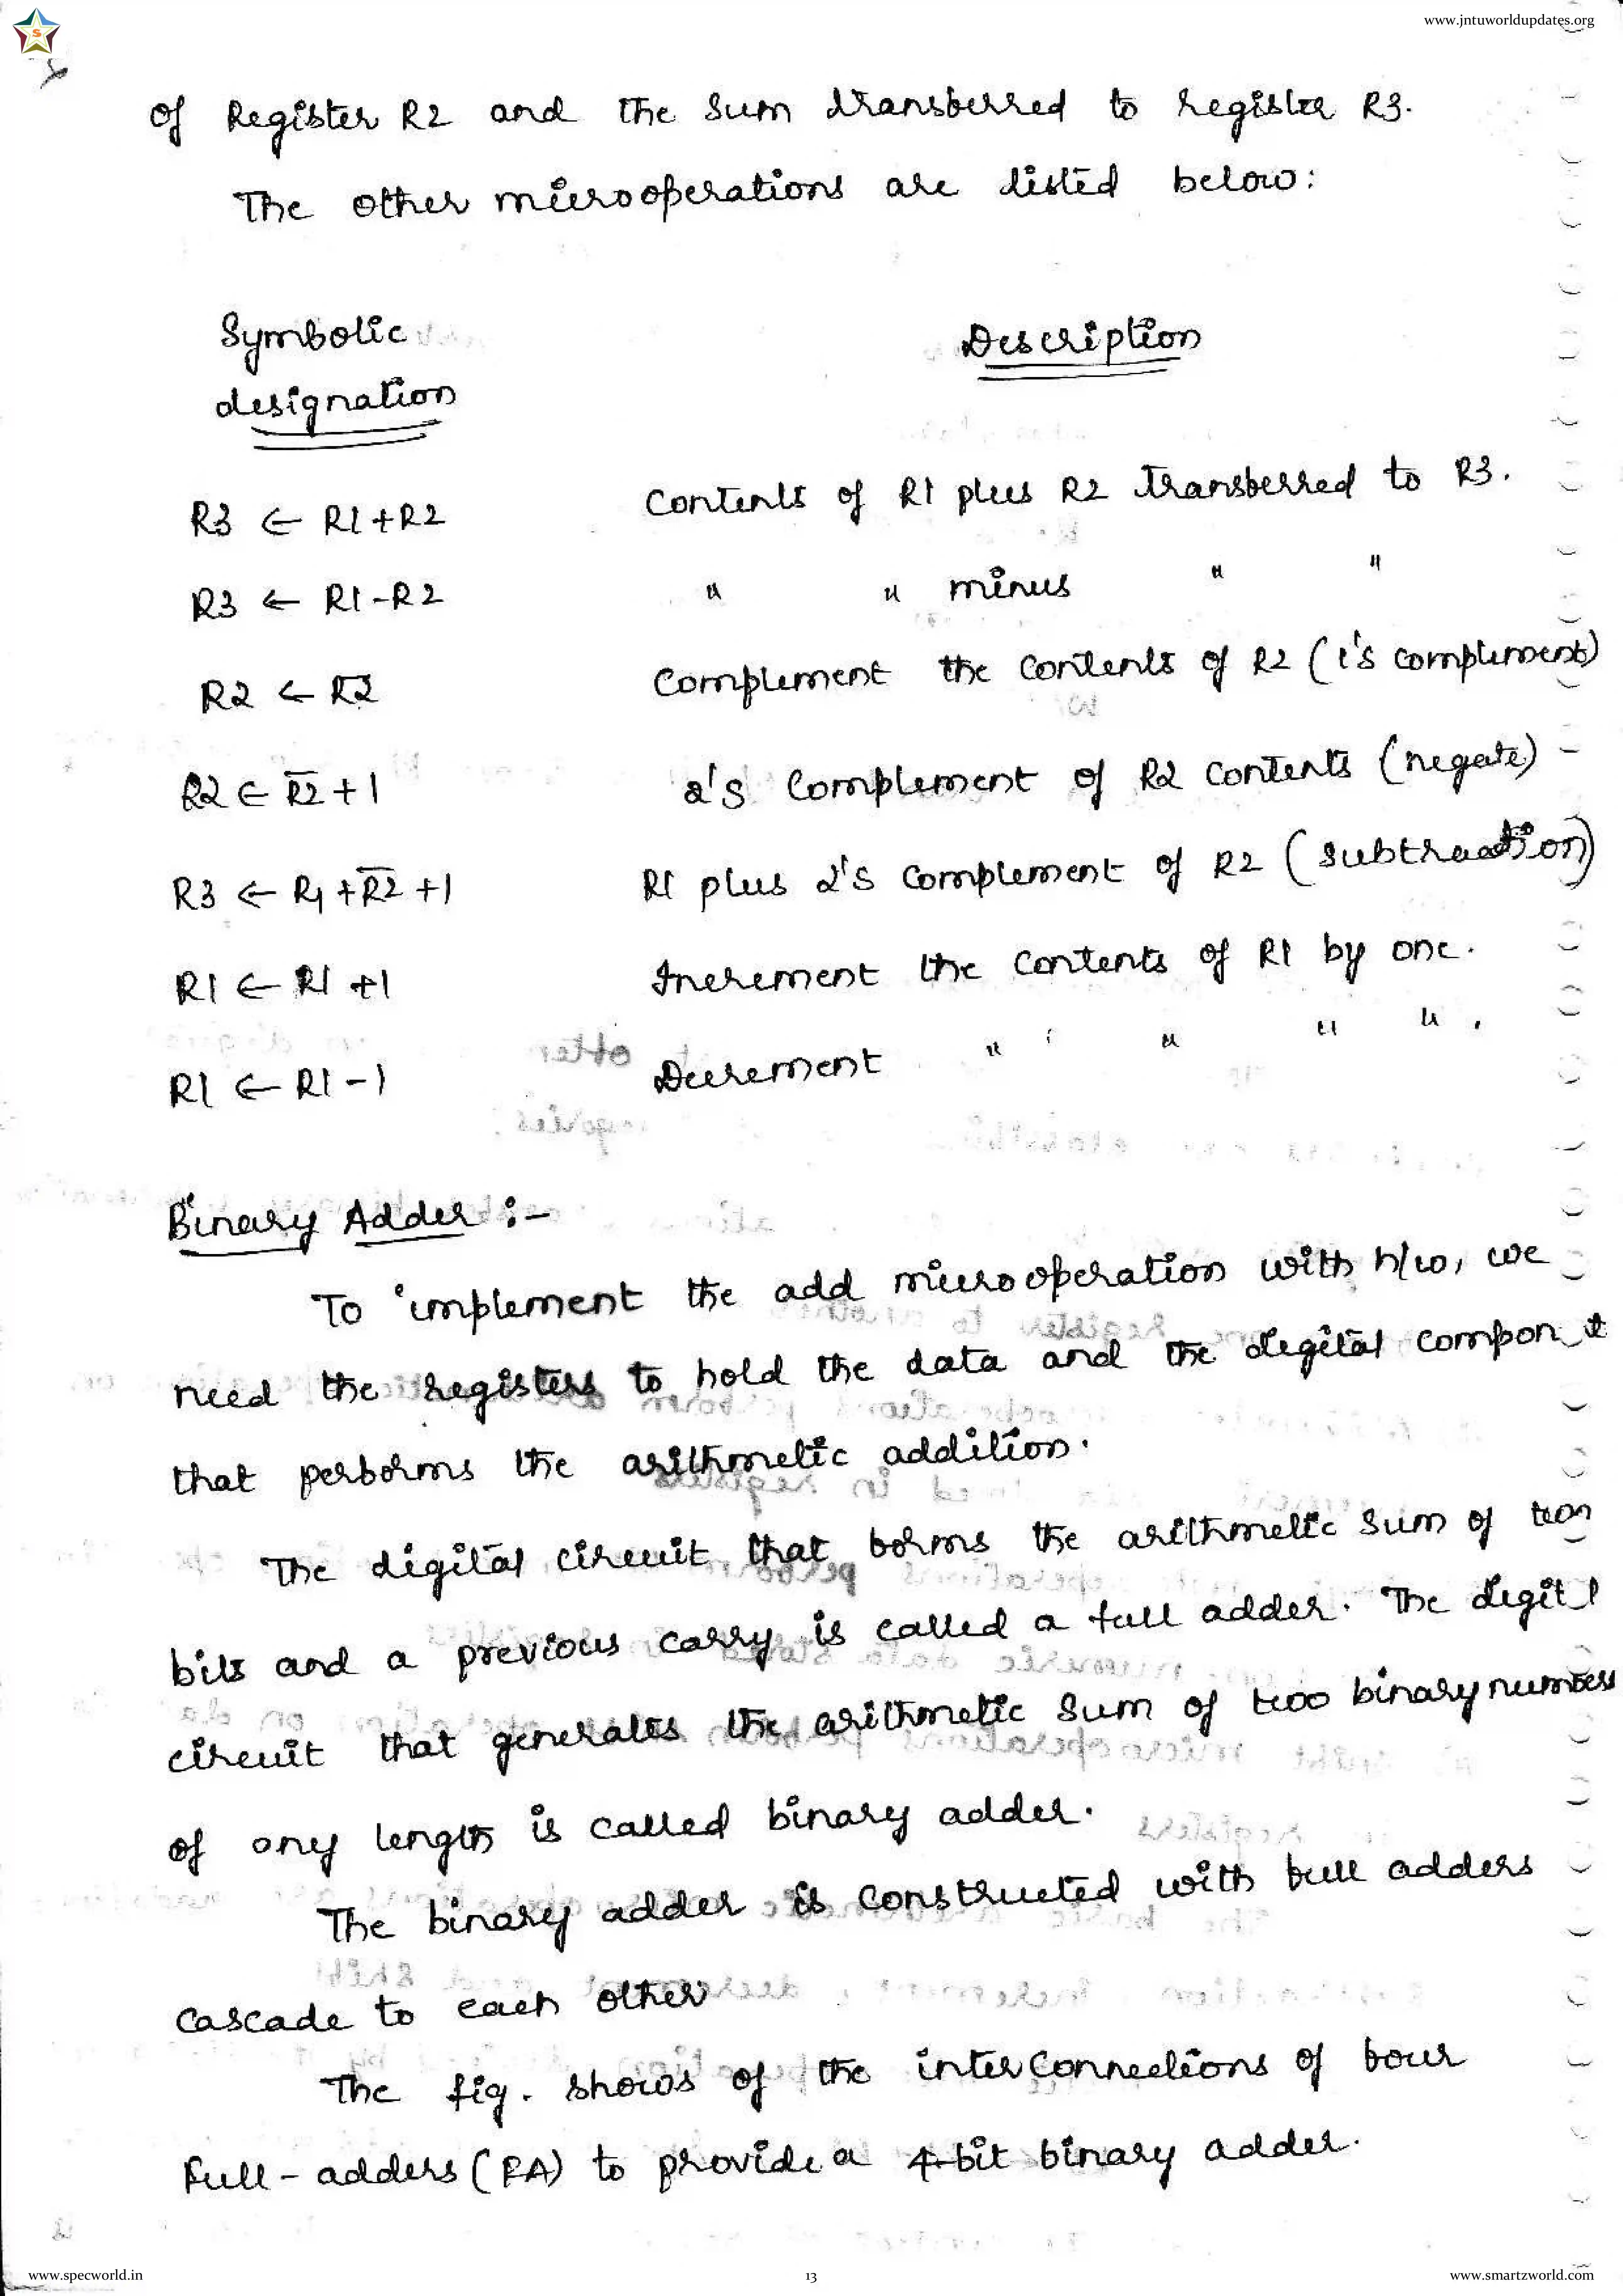 www.jntuworldupdates.org
S
of Register R2 and the Sum transferred to register R3.
The other microoperations are listed below:
Symbolic designation
Description
R3 ← R1 + R2 Contents of R1 plus R2 transferred to R3.
R3 ← R1 - R2 " " minus " "
R2 ← R̅2̅ Complement the contents of R2 (1's complement)
R2 ← R̅2̅ + 1 2's Complement of R2 contents (negate)
R3 ← R1 + R̅2̅ + 1 R1 plus 2's complement of R2 (subtraction)
R1 ← R1 + 1 Increment the contents of R1 by one.
R1 ← R1 - 1 Decrement " " " " .
Binary Adder :-
To implement the add microoperation with h/w, we
need the registers to hold the data and the digital
that performs the arithmetic addition.
The digital circuit that forms the arithmetic sum of two
bits and a previous carry is called a full adder. The
circuit that generates the arithmetic sum of two binary numbers
of any length is called binary adder.
The binary adder is constructed with full adders
cascade to each other
The fig. shows of the interconnections of four
full-adders (FA) to provide a 4-bit binary adder.
www.specworld.in
13
www.smartzworld.com